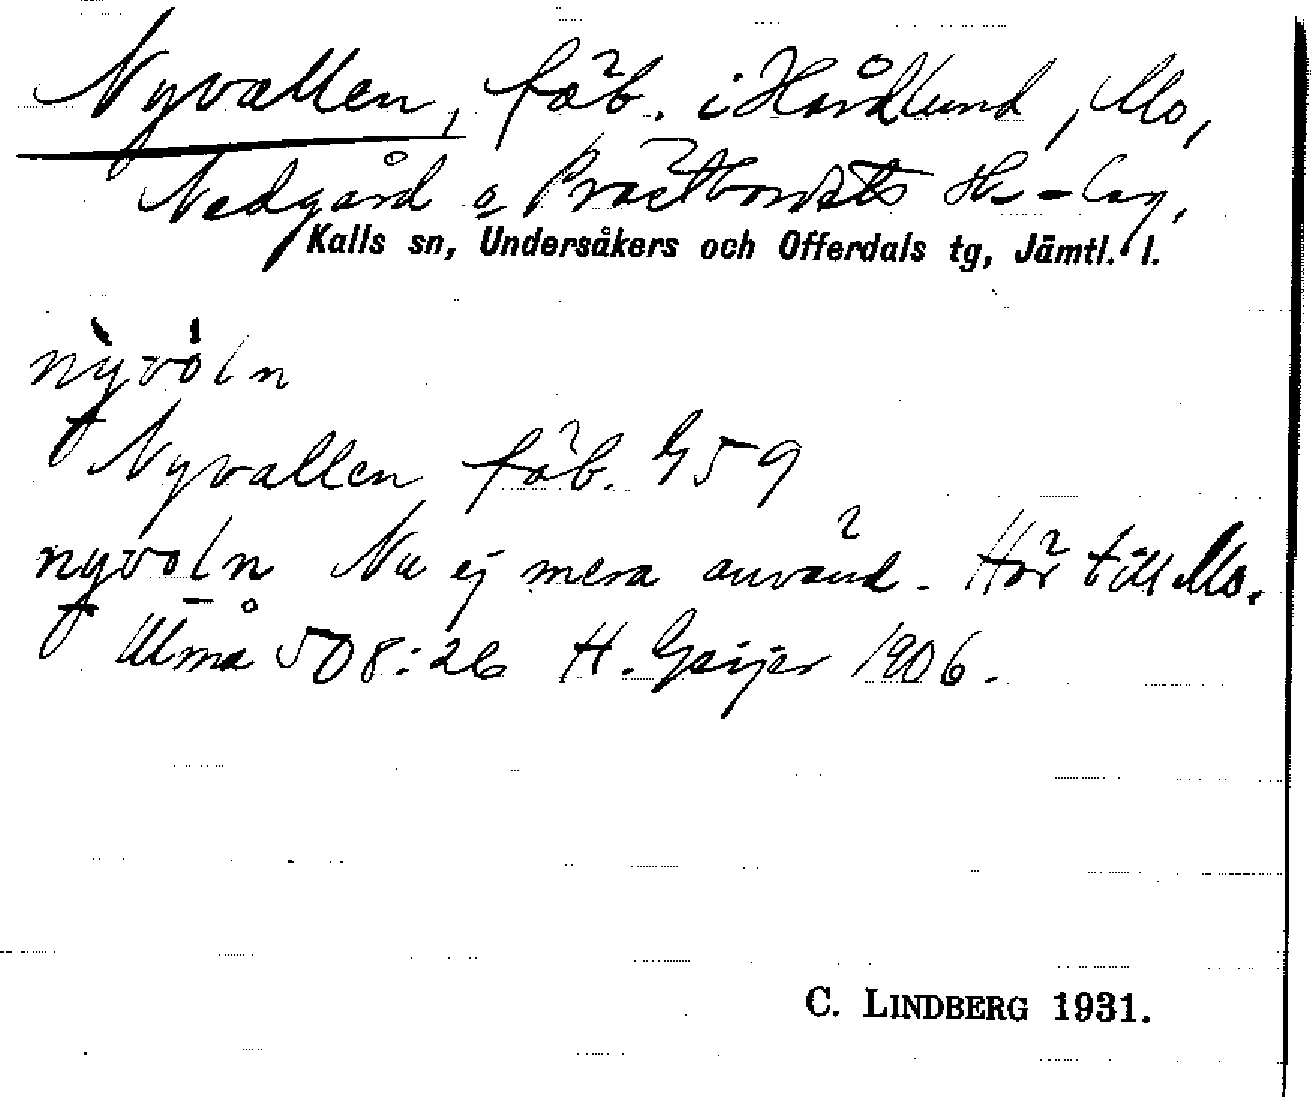 Nyvallen, fäb. i Hårdlund, Mo,
Nedgård o Prästbordets Hs-lag,
Kalls sn, Undersåkers och Offerdals tg, Jämtl. l.
nỳvòln
Nyvallen fäb. G59
nyvoln Nu ej mera använd. Hör till Mo.
Ulmå 508:26 H. Geijer 1906.
C. LINDBERG 1931.